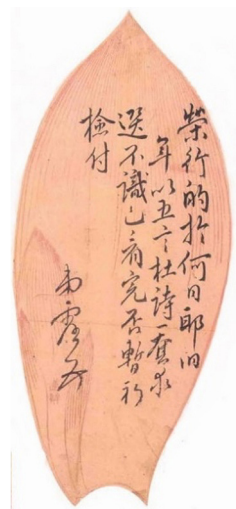 榮行的於何日耶旧
年以五言杜詩一套求
選不識已看完否暫祈
檢付
弟霑頓